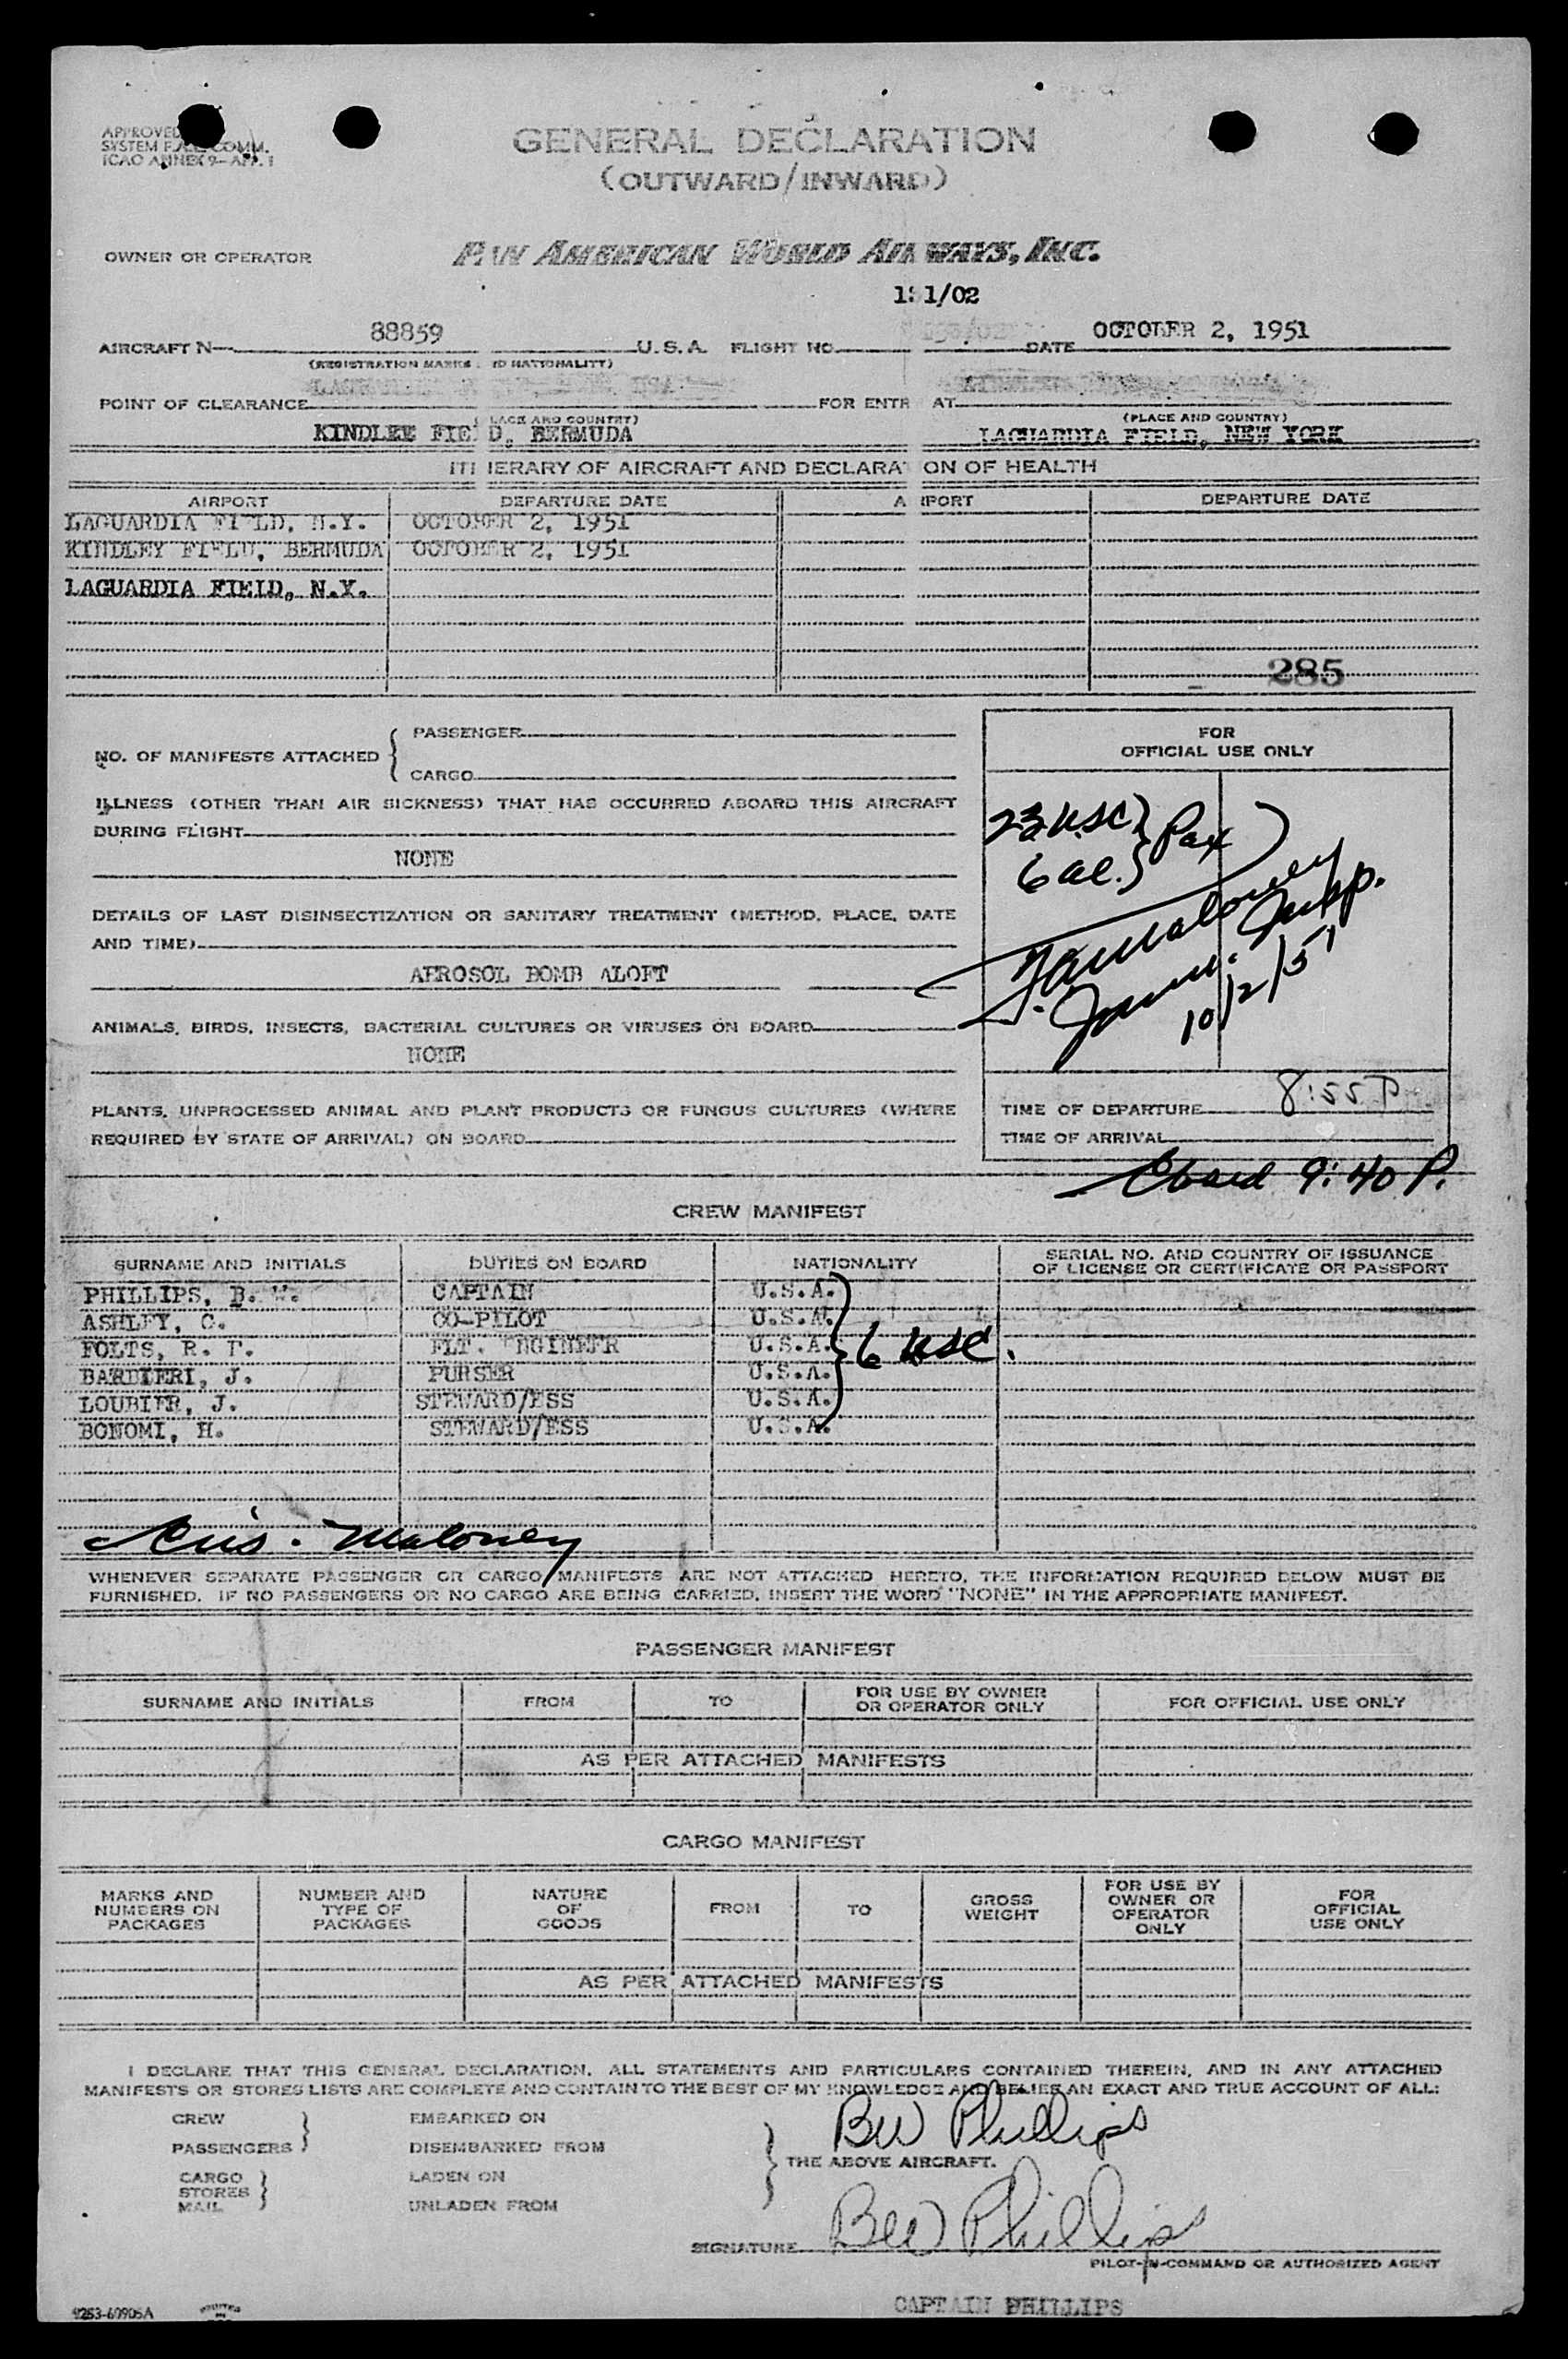 APPROVED
SYSTEM COMM.
ICAO ANNEX 9—APP. 1
GENERAL DECLARATION
(OUTWARD/INWARD)
OWNER OR OPERATOR PAN AMERICAN WORLD AIRWAYS, INC.
1/02
AIRCRAFT N— 88859 U.S.A. FLIGHT NO. DATE OCTOBER 2, 1951
(REGISTRATION MARKS ND NATIONALITY)
POINT OF CLEARANCE FOR ENTR AT
LACE AND COUNTRY) (PLACE AND COUNTRY)
KINDLEE FIE D, BERMUDA LAGUARDIA FIELD, NEW YORK
ITI IERARY OF AIRCRAFT AND DECLARAT ON OF HEALTH
AIRPORT DEPARTURE DATE A IRPORT DEPARTURE DATE
LAGUARDIA FIELD, N.Y. OCTOBER 2, 1951
KINDLEY FIELD, BERMUDA OCTOBER 2, 1951
LAGUARDIA FIELD, N.Y.
285
NO. OF MANIFESTS ATTACHED { PASSENGER
CARGO
FOR
OFFICIAL USE ONLY
ILLNESS (OTHER THAN AIR SICKNESS) THAT HAS OCCURRED ABOARD THIS AIRCRAFT
DURING FLIGHT
NONE
23 USC } Pax
6 al. }
DETAILS OF LAST DISINSECTIZATION OR SANITARY TREATMENT (METHOD, PLACE, DATE
AND TIME)
AEROSOL BOMB ALOFT
Maloney
Imm. Insp.
10/2/51
ANIMALS, BIRDS, INSECTS, BACTERIAL CULTURES OR VIRUSES ON BOARD
NONE
PLANTS, UNPROCESSED ANIMAL AND PLANT PRODUCTS OR FUNGUS CULTURES (WHERE
REQUIRED BY STATE OF ARRIVAL) ON BOARD
TIME OF DEPARTURE 8:55 P
TIME OF ARRIVAL
9:40 P.
CREW MANIFEST
SURNAME AND INITIALS DUTIES ON BOARD NATIONALITY SERIAL NO. AND COUNTRY OF ISSUANCE
OF LICENSE OR CERTIFICATE OR PASSPORT
PHILLIPS, B. W. CAPTAIN U.S.A.
ASHLEY, C. CO-PILOT U.S.A.
FOLTS, R. T. FLT. ENGINEER U.S.A. 6 USC.
BARBIERI, J. PURSER U.S.A.
LOUBIER, J. STEWARD/ESS U.S.A.
BONOMI, H. STEWARD/ESS U.S.A.
Maloney
WHENEVER SEPARATE PASSENGER OR CARGO MANIFESTS ARE NOT ATTACHED HERETO, THE INFORMATION REQUIRED BELOW MUST BE
FURNISHED. IF NO PASSENGERS OR NO CARGO ARE BEING CARRIED, INSERT THE WORD "NONE" IN THE APPROPRIATE MANIFEST.
PASSENGER MANIFEST
SURNAME AND INITIALS FROM TO FOR USE BY OWNER
OR OPERATOR ONLY FOR OFFICIAL USE ONLY
AS PER ATTACHED MANIFESTS
CARGO MANIFEST
MARKS AND
NUMBERS ON
PACKAGES
NUMBER AND
TYPE OF
PACKAGES
NATURE
OF
GOODS
FROM
TO
GROSS
WEIGHT
FOR USE BY
OWNER OR
OPERATOR
ONLY
FOR
OFFICIAL
USE ONLY
AS PER ATTACHED MANIFESTS
I DECLARE THAT THIS GENERAL DECLARATION, ALL STATEMENTS AND PARTICULARS CONTAINED THEREIN, AND IN ANY ATTACHED
MANIFESTS OR STORES LISTS ARE COMPLETE AND CONTAIN TO THE BEST OF MY KNOWLEDGE AND BELIEF AN EXACT AND TRUE ACCOUNT OF ALL:
CREW EMBARKED ON
PASSENGERS DISEMBARKED FROM
CARGO LADEN ON
STORES
MAIL UNLADEN FROM
BW Phillips
THE ABOVE AIRCRAFT.
SIGNATURE BW Phillips
PILOT-IN-COMMAND OR AUTHORIZED AGENT
CAPTAIN PHILLIPS
9253-60905A